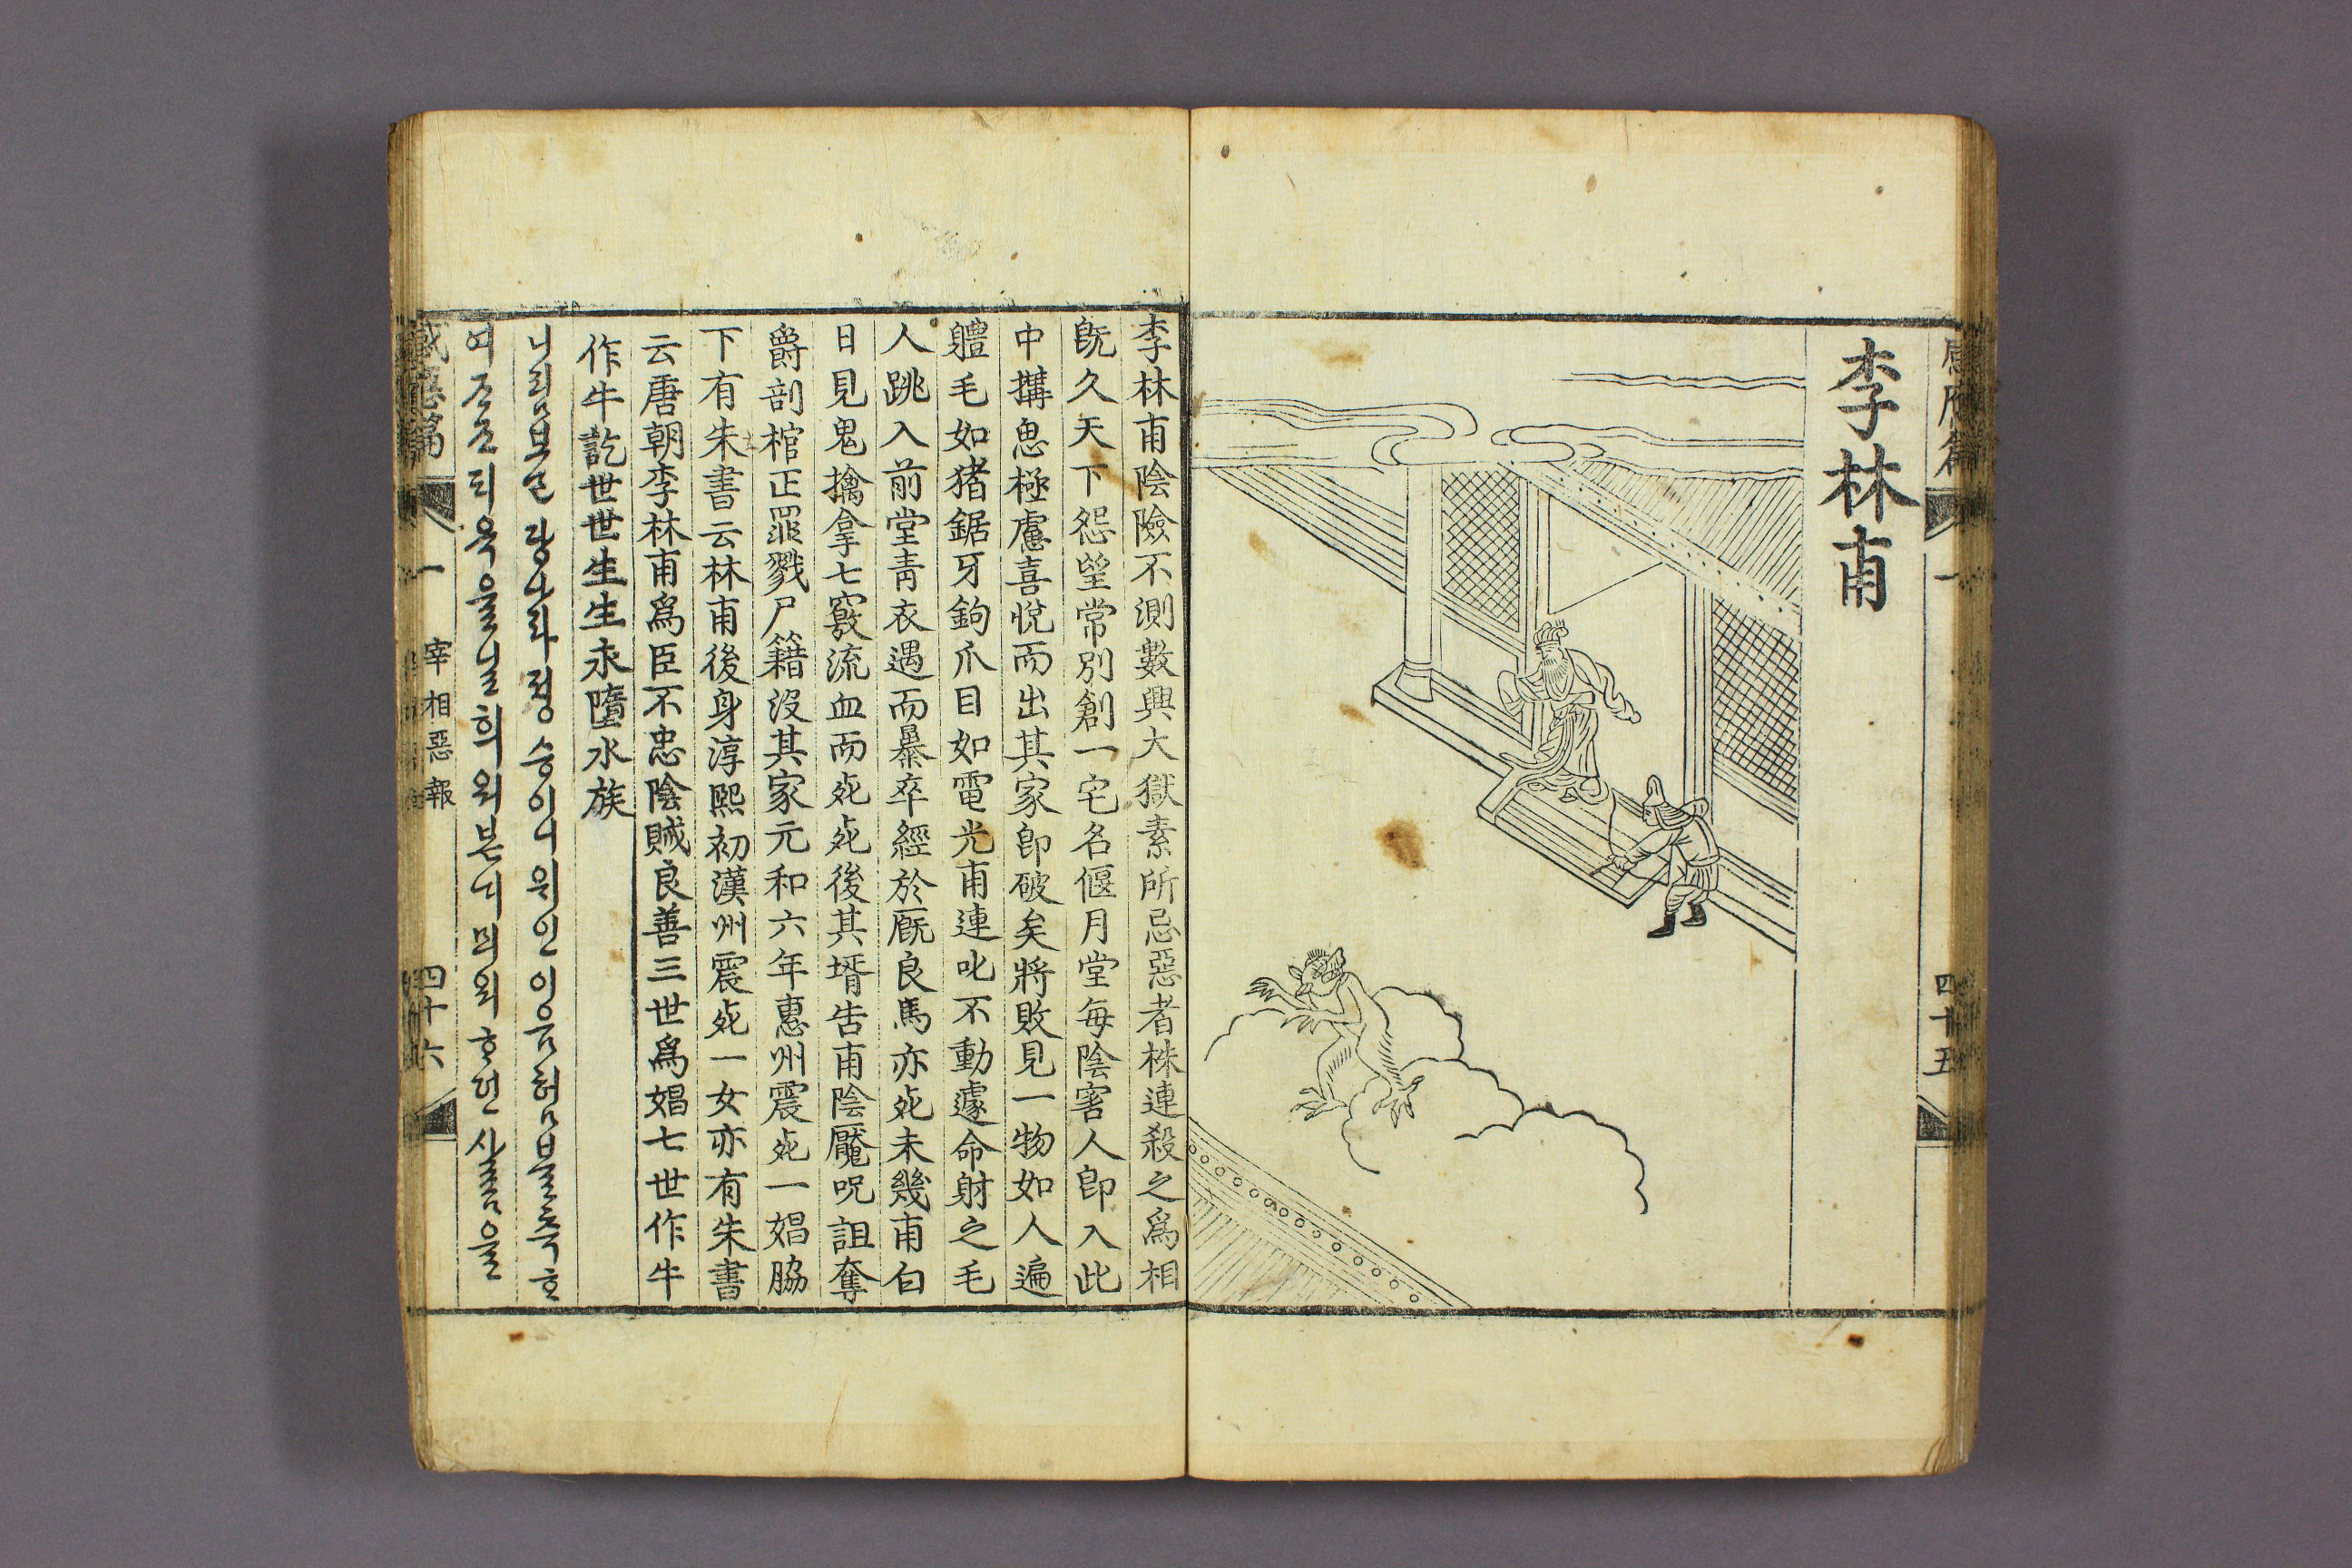 感應篇 一 四十五
李林甫
李林甫陰險不測數興大獄素所忌惡者株連殺之爲相
旣久天下怨望常別創一宅名偃月堂每陰害人卽入此
中搆思極慮喜悅而出其家卽破矣將敗見一物如人遍
軆毛如猪鋸牙鉤爪目如電光甫連叱不動遽命射之毛
人跳入前堂靑衣遇而暴卒經於厩良馬亦死未幾甫白
日見鬼擒拿七竅流血而死死後其壻告甫陰魘呪詛奪
爵剖棺正罪戮尸籍沒其家元和六年惠州震死一娼脇
下有朱書云林甫後身淳熙初漢州震死一女亦有朱書
云唐朝李林甫爲臣不忠陰賊良善三世爲娼七世作牛
作牛訖世世生生永墮水族
니림보ᄂᆞᆫ 당나라 정승이니 위인이 음험 블측ᄒᆞ
여 ᄌᆞ조 되옥을 닐희 뫼 븐디 믜외ᄒᆞ던 사ᄅᆞᆷ을
感應篇 一 宰相惡報 四十六